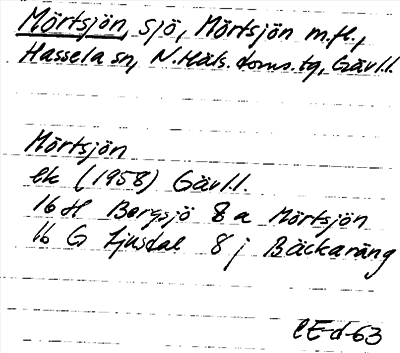 Mörtsjön, sjö, Mörtsjön m.fl.,
Hassela sn, N.Häls. doms.tg, Gävl.l.
Mörtsjön
ek (1958) Gävl.l.
16 H Bergsjö 8 a Mörtsjön
16 G Ljusdal 8 j Bäckaräng
CEd-63